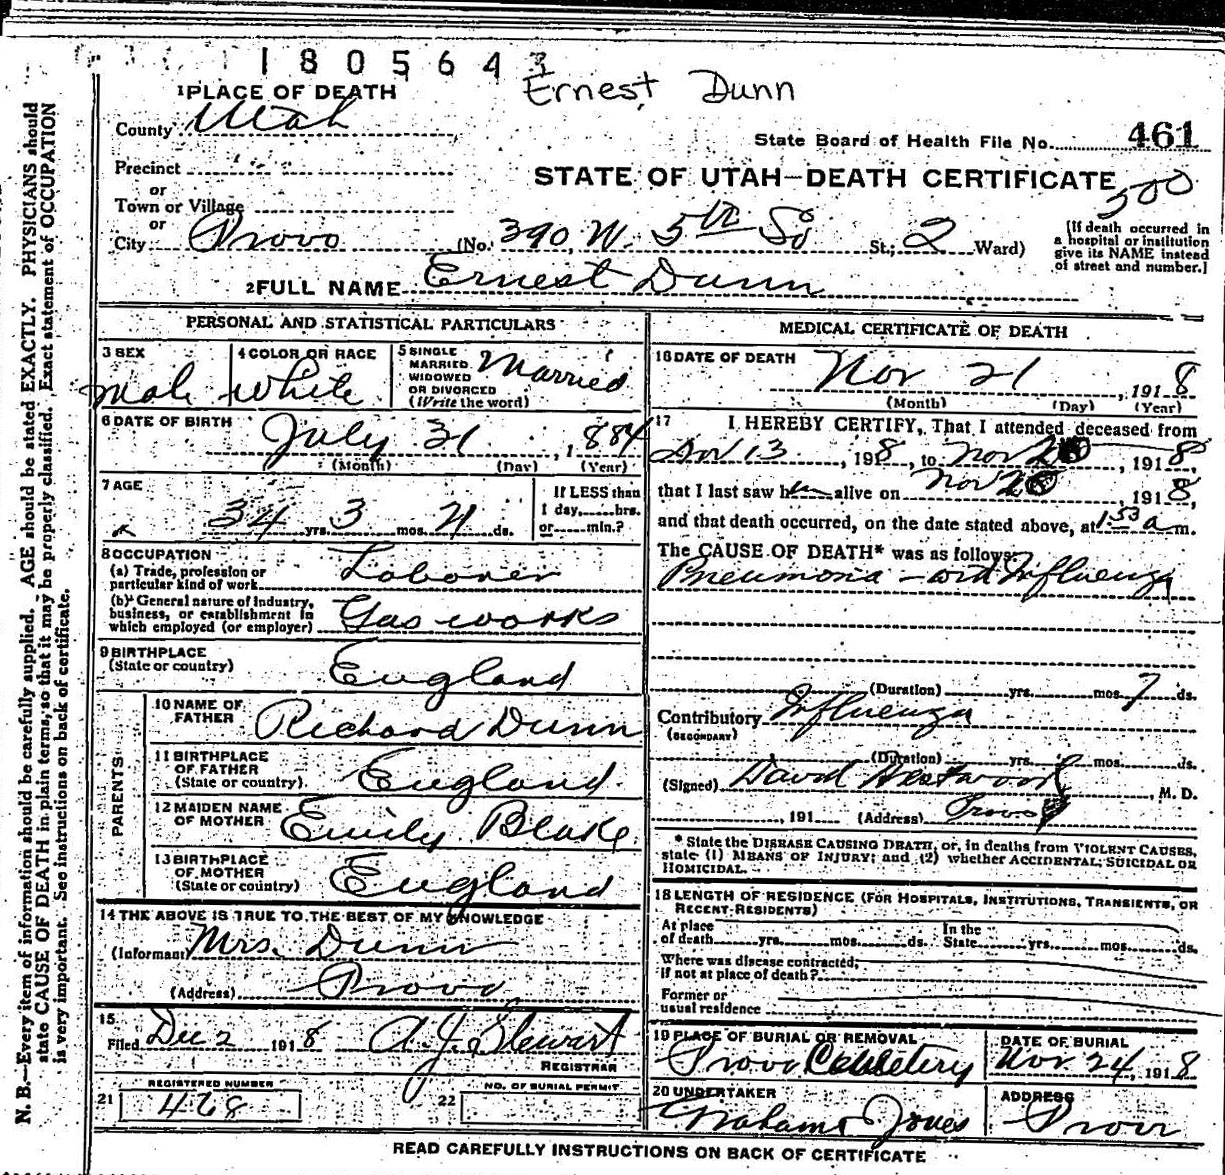 1805643
Ernest Dunn
1 PLACE OF DEATH
County Utah
State Board of Health File No. 461
Precinct
or
STATE OF UTAH—DEATH CERTIFICATE
500
Town or Village
or
City Provo (No. 390 W. 5th So St.; 2 Ward)
[If death occurred in a hospital or institution give its NAME instead of street and number.]
2 FULL NAME Ernest Dunn
PERSONAL AND STATISTICAL PARTICULARS
3 SEX
Male
4 COLOR OR RACE
White
5 SINGLE MARRIED WIDOWED OR DIVORCED (Write the word)
Married
6 DATE OF BIRTH July 31, 1884
(Month) (Day) (Year)
7 AGE
34 yrs. 3 mos. 21 ds.
If LESS than 1 day, hrs. or min.?
8 OCCUPATION
(a) Trade, profession or particular kind of work Laborer
(b) General nature of industry, business, or establishment in which employed (or employer) Gas works
9 BIRTHPLACE
(State or country) England
PARENTS
10 NAME OF FATHER Richard Dunn
11 BIRTHPLACE OF FATHER (State or country) England
12 MAIDEN NAME OF MOTHER Emily Blake
13 BIRTHPLACE OF MOTHER (State or country) England
14 THE ABOVE IS TRUE TO THE BEST OF MY KNOWLEDGE
(Informant Mrs. Dunn
(Address) Provo
15
Filed Dec 2 1918 A. J. Stewart
REGISTRAR
REGISTERED NUMBER
21 468
NO. OF BURIAL PERMIT
22
MEDICAL CERTIFICATE OF DEATH
16 DATE OF DEATH
Nov 21, 1918
(Month) (Day) (Year)
17 I HEREBY CERTIFY, That I attended deceased from
Nov 13, 1918, to Nov 20, 1918,
that I last saw him alive on Nov 20, 1918,
and that death occurred, on the date stated above, at 1 53 a m.
The CAUSE OF DEATH* was as follows:
Pneumonia Influenza
(Duration) yrs. mos. 7 ds.
Contributory Influenza
(SECONDARY)
(Duration) yrs. mos. ds.
(Signed) David Westwood, M. D.
, 191 (Address) Provo
* State the DISEASE CAUSING DEATH, or, in deaths from VIOLENT CAUSES,
state (1) MEANS OF INJURY; and (2) whether ACCIDENTAL, SUICIDAL OR
HOMICIDAL.
18 LENGTH OF RESIDENCE (FOR HOSPITALS, INSTITUTIONS, TRANSIENTS, OR
RECENT RESIDENTS)
At place of death yrs. mos. ds. In the State yrs. mos. ds.
Where was disease contracted,
if not at place of death?
Former or
usual residence
19 PLACE OF BURIAL OR REMOVAL
Provo Cemetery
DATE OF BURIAL
Nov 24, 1918
20 UNDERTAKER
Jones
ADDRESS
Provo
READ CAREFULLY INSTRUCTIONS ON BACK OF CERTIFICATE
N. B.—Every item of information should be carefully supplied. AGE should be stated EXACTLY. PHYSICIANS should
state CAUSE OF DEATH in plain terms, so that it may be properly classified. Exact statement of OCCUPATION
is very important. See instructions on back of certificate.